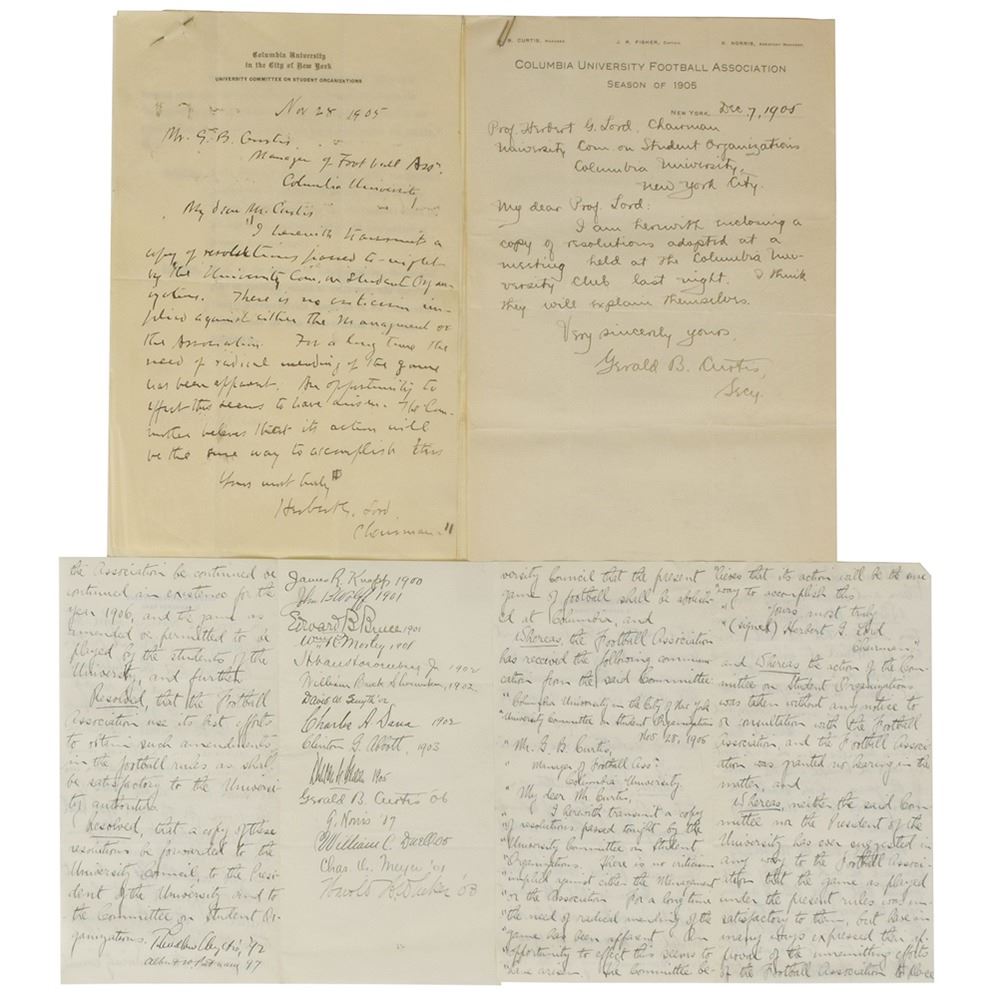 Columbia University
in the City of New York
UNIVERSITY COMMITTEE ON STUDENT ORGANIZATIONS
Nov 28 1905
Mr. G. B. Curtis,
Manager of Football Assn.
Columbia University
My dear Mr. Curtis
"I herewith transmit a
copy of resolutions passed to-night
by the University Com. on Student Organ-
izations. There is no criticism im-
plied against either the Managment or
the Association. For a long time the
need of radical mending of the game
has been apparent. An opportunity to
effect this seems to have arisen. The Com-
mittee believes that its action will
be the sure way to accomplish this
Yours most truly
Herbert G. Lord
Chairman"
CURTIS, MANAGER J. R. FISHER, CAPTAIN NORRIS, ASSISTANT MANAGER
COLUMBIA UNIVERSITY FOOTBALL ASSOCIATION
SEASON OF 1905
NEW YORK, Dec. 7, 1905
Prof. Herbert G. Lord, Chairman
University Com. on Student Organizations
Columbia University,
New York City.
My dear Prof. Lord:
I am herewith enclosing a
copy of resolutions adopted at a
meeting held at the Columbia Uni-
versity Club last night. I think
they will explain themselves.
Very sincerely yours,
Gerald B. Curtis,
Secy.
the Association be continued or
continued in existence for the
year 1906, and the game as
amended or permitted to be
played by the students of the
University, and further
Resolved, that the Football
Association use its best efforts
to obtain such amendments
in the football rules as shall
be satisfactory to the Universi-
ty authorities.
Resolved, that a copy of these
resolutions be forwarded to the
University Council, to the Presi-
dent of the University and to
the Committee on Student Or-
ganizations.
'92
'97
James R. Knapp 1900
John 1901
Edward B. Bruce 1901
Wm. Morley 1901
Jr. 1902
William 1902
David
Charles A. Dana 1902
Clinton G. Abbott, 1903
1905
Gerald B. Curtis '06
G. Norris '07
William C. Duell
Chas. Meyer
Harold
versity Council that the present
game of football shall be abolish-
ed at Columbia, and
Whereas, the Football Association
has received the following communi-
cation from the said Committee
"Columbia University in the City of New York
"University Committee on Student Organizations
Nov 28, 1905
"Mr. G. B. Curtis,
" Manager of Football Assn.
" Columbia University.
"My dear Mr. Curtis,
" I herewith transmit a copy
"of resolutions passed tonight by the
"University Committee on Student
"Organizations. There is no criticism
"implied against either the Management
"or the Association. For a long time
"the need of radical mending of the
"game has been apparent. An
"opportunity to effect this seems to
"have arisen. The Committee be-
"lieves that its action will be the sure
"way to accomplish this
" Yours most truly
"(signed) Herbert G. Lord
Chairman,"
and Whereas the action of the Com-
mittee on Student Organizations
was taken without any notice to
or consultation with the Football
Association, and the Football Associ-
ation was granted no hearing in the
matter, and
Whereas, neither the said Com-
mittee nor the President of the
University has ever suggested in
any way to the Football Associ-
ation that the game as played
under the present rules was un-
satisfactory to them, but have in
many ways expressed their ap-
proval of the unremitting efforts
of the Football Association to place